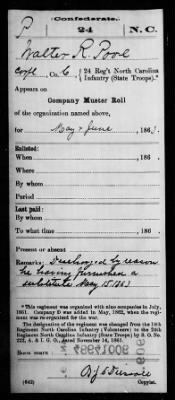 Confederate.
P 24 N. C.
Walter R. Pool
Corpl, Co. C, 24 Reg't North Carolina
Infantry (State Troops).*
Appears on
Company Muster Roll
of the organization named above,
for May & June, 186
Enlisted:
When , 186 .
Where
By whom
Period
Last paid:
By whom
To what time , 186 .
Present or absent
Remarks: Discharged by reason
he having furnished a
substitute May 15 1863
*This regiment was organized with nine companies in July,
1861. Company D was added in May, 1862, when the regi-
ment was re-organized for the war.
The designation of the regiment was changed from the 14th
Regiment North Carolina Infantry (Volunteers) to the 24th
Regiment North Carolina Infantry (State Troops) by S. O. No.
222, A. & I. G. O., dated November 14, 1861.
Book mark:
(642) Copyist.